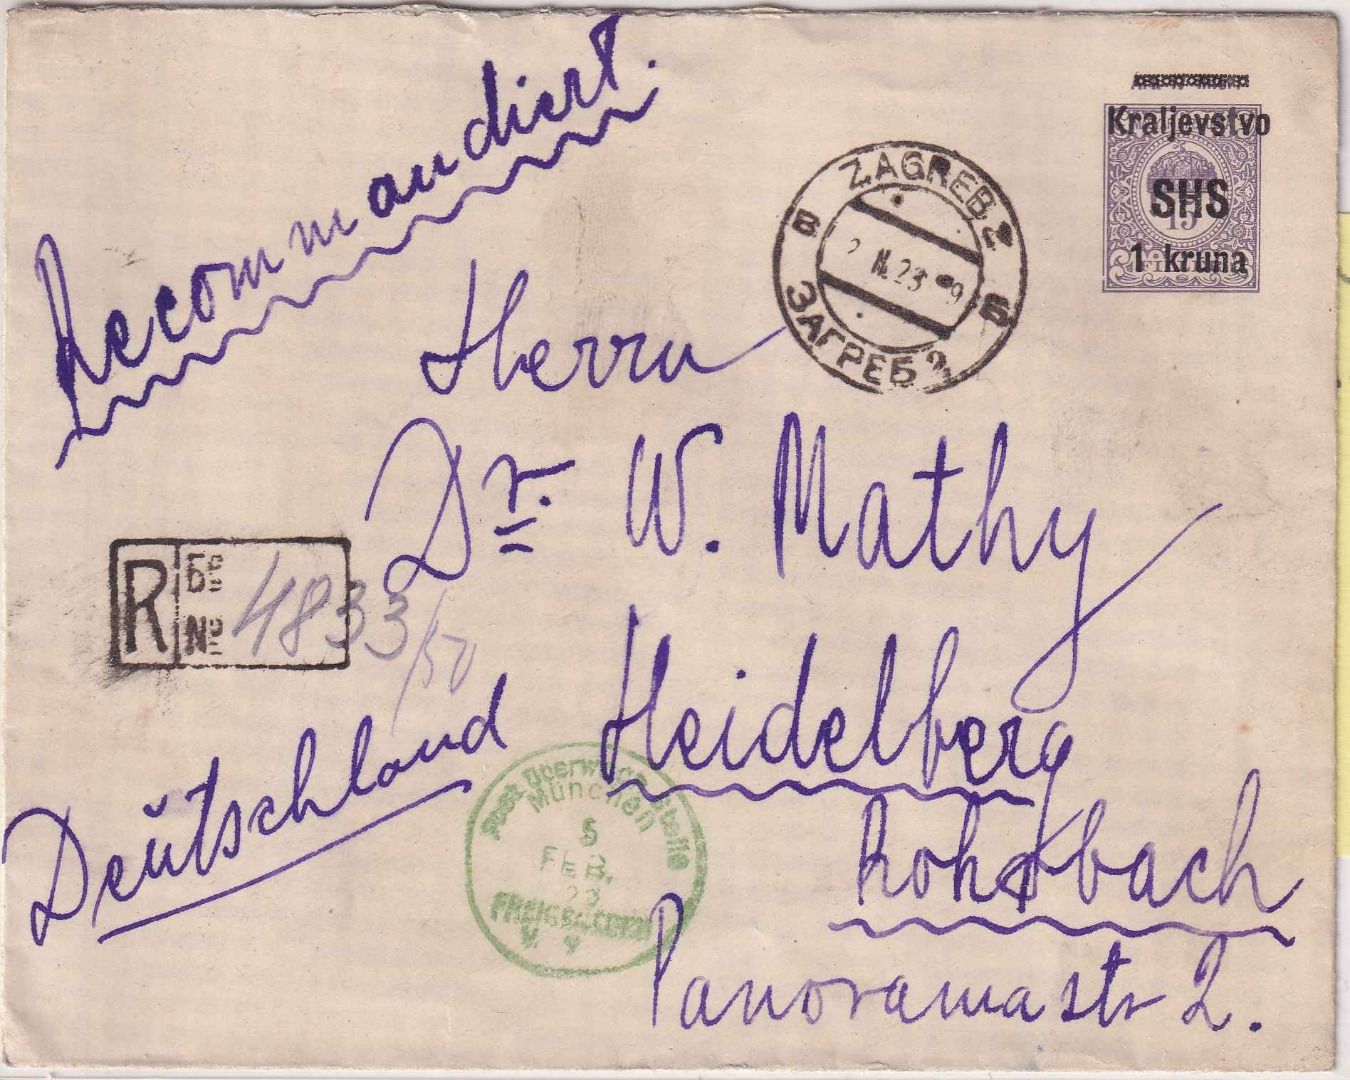 Recommandiert.
Kraljevstvo
SHS
15
1 kruna
ZAGREB 2
2 II. 23 9
ЗАГРЕБ 2
Herrn
Dr. W. Mathy
R Бр № 4833/50
Deutschland
Heidelberg
Rohrbach
Panoramastr 2.
München
5
FEB.
23